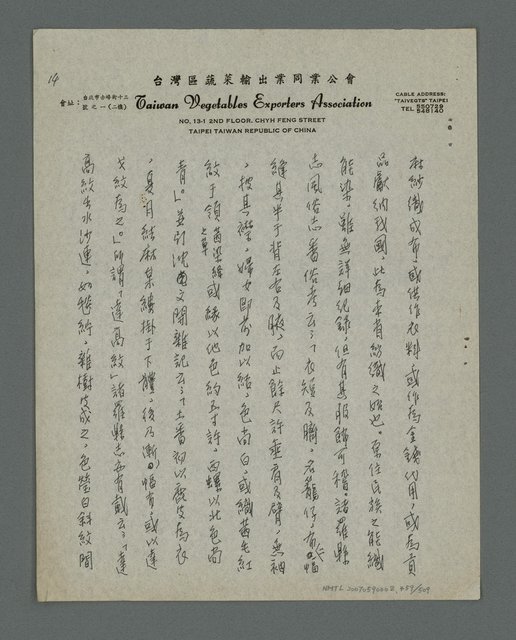 14
台灣區蔬菜輸出業同業公會
會址：台北市赤峰街十三號之一(二樓)
Taiwan Vegetables Exporters Association
CABLE ADDRESS:
"TAIVEGTS" TAIPEI
TEL: 550729
546140
NO. 13-1 2ND FLOOR. CHYH FENG STREET
TAIPEI TAIWAN REPUBLIC OF CHINA
紡紗織成布，或供作衣料，或作為金錢代用，或為貢
品獻納我國，此為本省紡織之始也。原住民族之能織
能染，雖無詳細紀錄，但有其服飾可稽。諸羅縣
志風俗志番俗考云：「衣短及臍，名籠仔，布二幅
縫其半于背左右及腋，而止餘尺許垂肩及臂，無袖
，披其襟。婦女即前加以結，色尚白，或織茜毛紅
紋于領，或緣以他色約五寸許，西螺以北色尚
青」。並引沈文開雜記云：「土番初以鹿皮為衣
，夏月結麻枲縷掛于下體，後乃漸有幅布，或以達
戈紋為之。」所謂「達高紋」諸羅縣志亦有載云：「達
高紋出水沙連，如毯紵，雜樹皮成之，色瑩白斜紋間
NMTL 20070590002 459/509